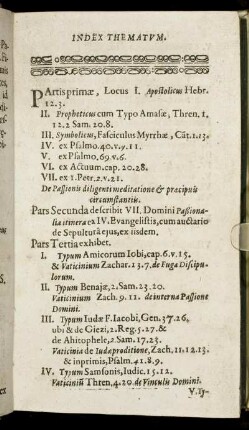 INDEX THEMATVM.
PArtis primæ, Locus I. Apostolicus Hebr.
12.3.
II. Propheticus cum Typo Amasæ, Thren. 1,
12.2 Sam. 20.8.
III. Symbolicus, Fasciculus Myrrhæ, Cāt. 1.13.
IV. ex Psalmo. 40. v. 9. 11.
V. ex Psalmo. 69. v. 6.
VI. ex Actuum. cap. 20.28.
VII. ex 1. Petr. 2. v. 21.
De Passionis diligenti meditatione & præcipuis
circumstantiis.
Pars Secunda describit VII. Domini Passiona-
lia itinera ex IV. Evangelistis, cum auctario
de Sepultura ejus, ex iisdem.
Pars Tertia exhibet.
I. Typum Amicorum Iobi, cap. 6. v. 15.
& Vaticinium Zachar. 13.7. de Fuga Discipu-
lorum.
II. Typum Benajæ, 2. Sam. 23. 20.
Vaticinium Zach. 9. 11. de interna Passione
Domini.
III. Typum Iudæ F. Iacobi, Gen. 37.26,
ubi & de Giezi, 2. Reg. 5. 27. &
de Ahitophele, 2. Sam. 17. 23.
Vaticinia de Iudæ proditione, Zach. 11.12.13
& inprimis, Psalm. 41.8.9.
IV. Typum Samsonis, Iudic. 15. 12.
Vaticiniū Thren. 4.20. de Vinculis Domini.
V. Ty-